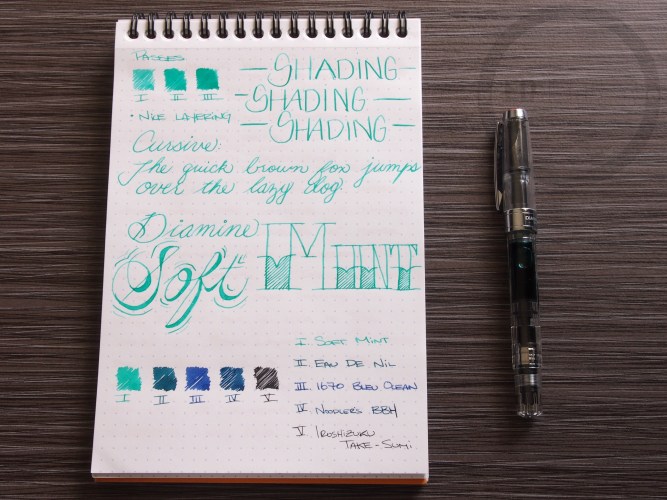 PASSES
I II III
• NICE LAYERING
— SHADING —
— SHADING —
— SHADING —
Cursive:
The quick brown fox jumps
over the lazy dog.
Diamine
Soft Mint
I II III IV V
I SOFT MINT
II EAU DE NIL
III 1670 BLEU OCEAN
IV NOODLER'S BBH
V IROSHIZUKU
TAKE-SUMI